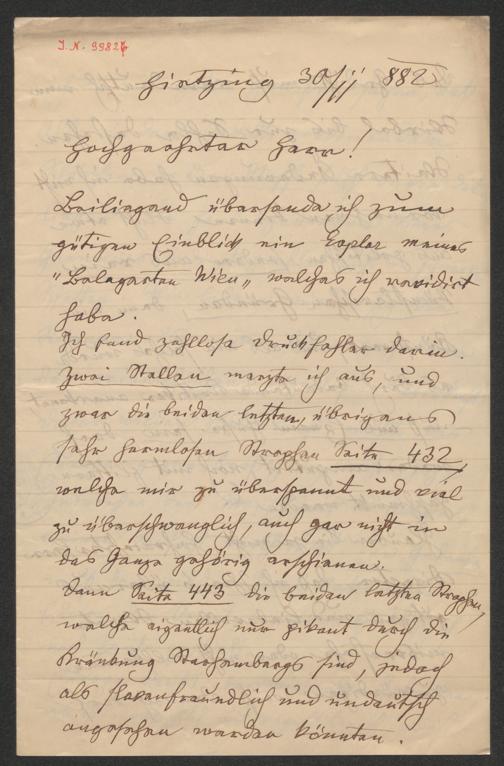 I. N. 99827
Hietzing 30/11 882
Hochgeehrter Herr!
Beiliegend übersende ich zum
gütigen Einblick ein Explar meines
"Belagerten Wien", welches ich revidirt
habe.
Ich fand zahllose Druckfehler darin.
Zwei Stellen merzte ich aus, und
zwar die beiden letzten, übrigens
sehr harmlosen Strophen Seite 432,
welche mir zu überspannt und viel
zu überschwanglich, auch gar nicht in
das Ganze gehörig erschienen.
Dann Seite 443 die beiden letzten Strophen,
welche eigentlich nur pikant durch die
Kränkung Starhembergs sind, jedoch
als slavenfreundlich und undeutsch
angesehen werden könnten.